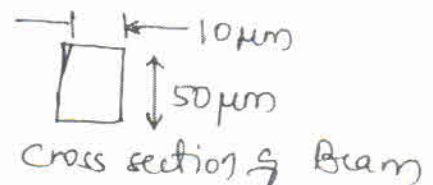 10 μm
50 μm
Cross section of Beam